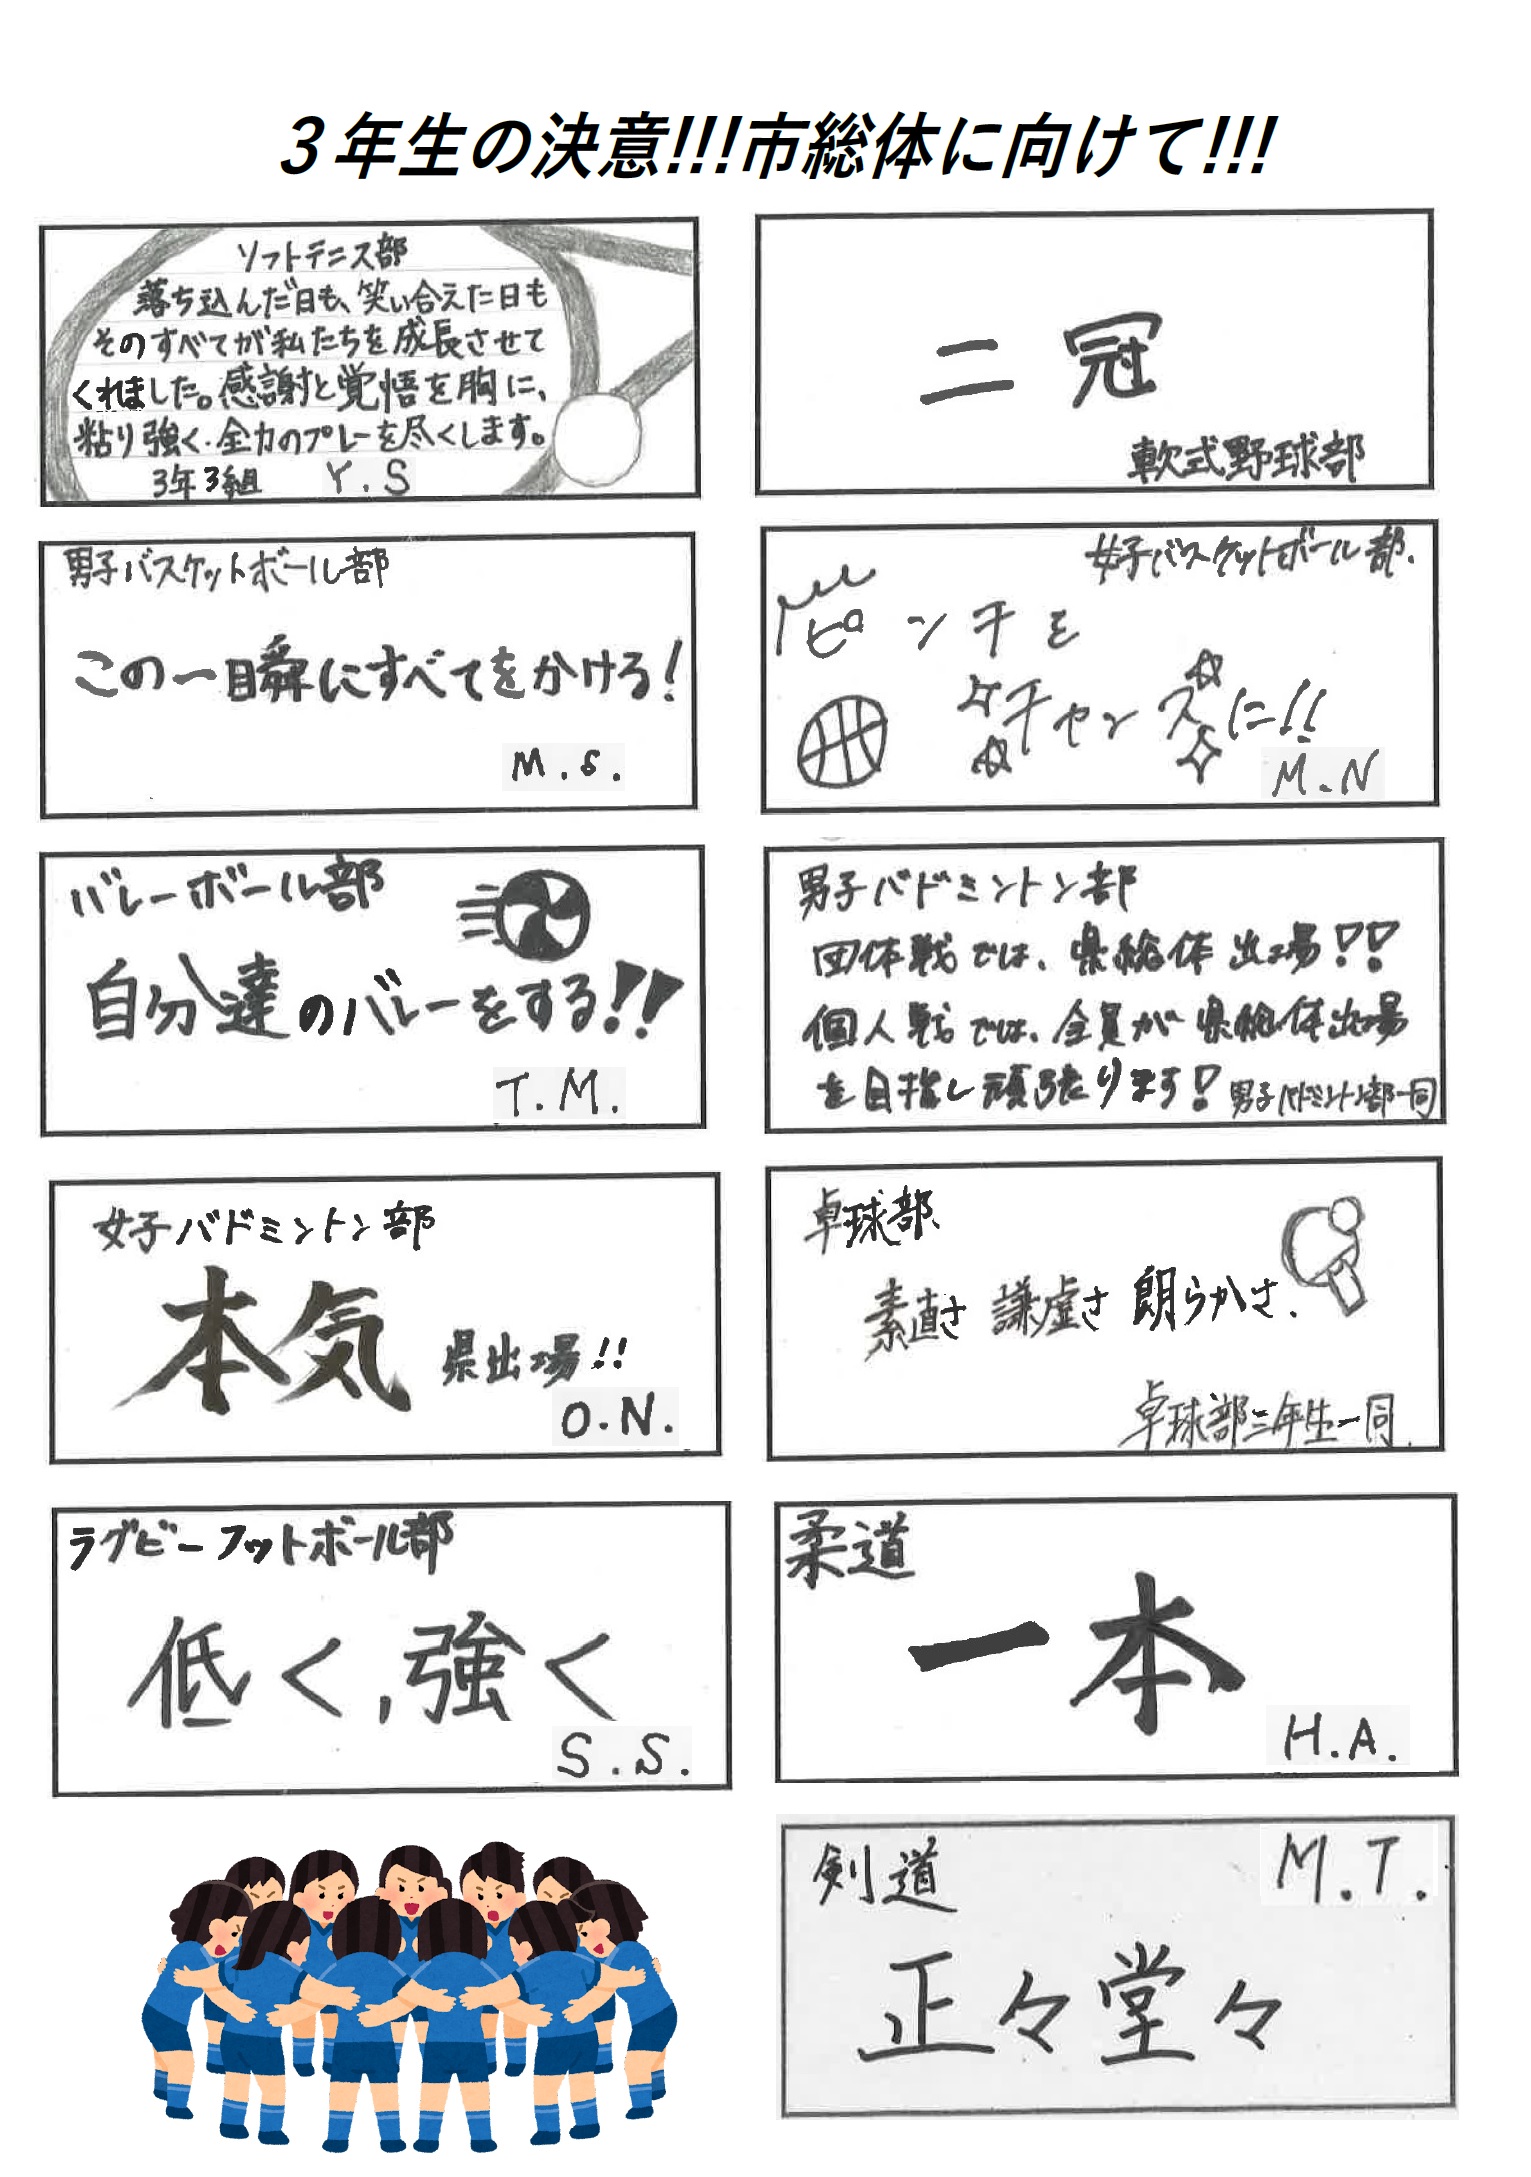 ３年生の決意!!!市総体に向けて!!!
ソフトテニス部
落ち込んだ日も、笑い合えた日も
そのすべてが私たちを成長させて
くれました。感謝と覚悟を胸に、
粘り強く、全力のプレーを尽くします。
3年3組 Y.S
二冠
軟式野球部
男子バスケットボール部
この一瞬にすべてをかけろ!
M.S.
女子バスケットボール部.
ピンチを
チャンスに!!
M.N
バレーボール部
自分達のバレーをする!!
T.M.
男子バドミントン部
団体戦では、県総体出場!!
個人戦では、全員が県総体出場
を目指し頑張ります! 男子バドミントン部一同
女子バドミントン部
本気 県出場!!
O.N.
卓球部
素直さ 謙虚さ 朗らかさ.
卓球部三年生一同.
ラグビーフットボール部
低く,強く
S.S.
柔道
一本
H.A.
剣道 M.T.
正々堂々